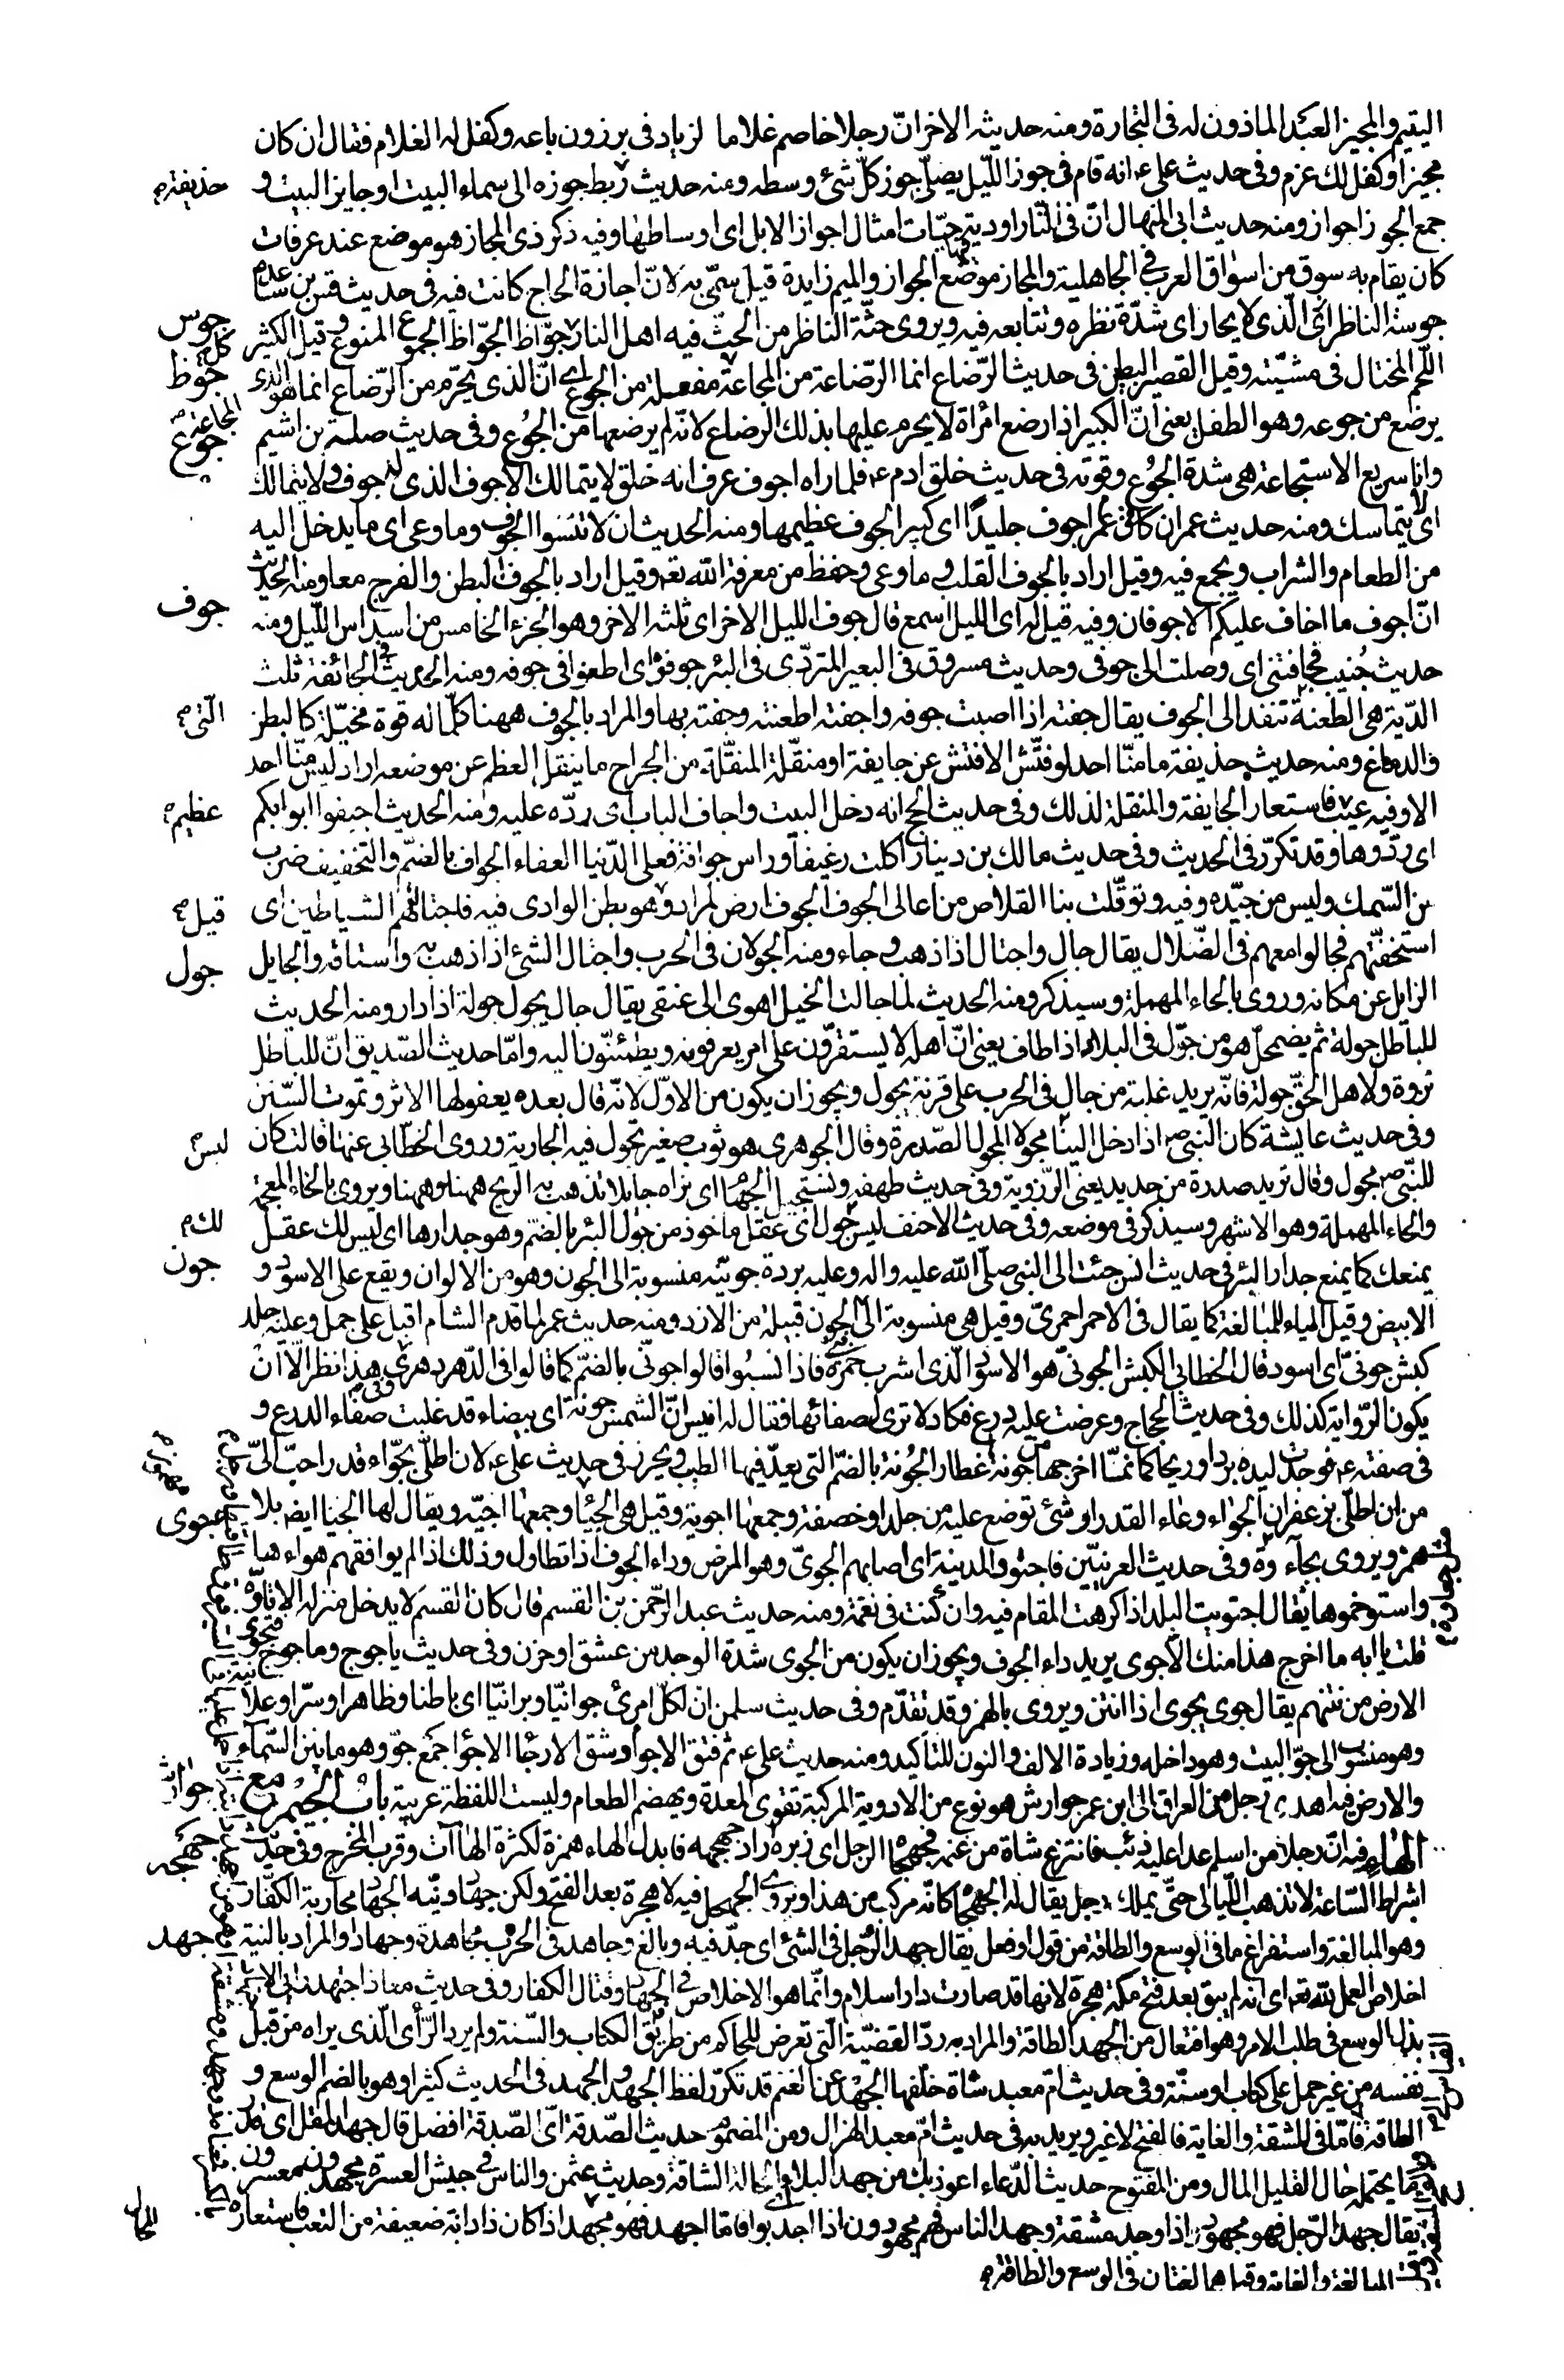 اليقيم والمجيز العبد الماذون له فى التجارة ومنه حديثه الاخر انّ رجلا خاصم غلاما لزياد فى برزون باعه وكفل له الغلام فقال ان كان
مجيزا وكفل لك عزم وفى حديث على ع انه قام فى جوز اللّيل يصلّى جوز كلّ شئ وسطه ومنه حديث ربط جوزه الى سماء البيت او جايز البيت و
حذيفة
جمع الجوز اجواز ومنه حديث ابى المنهال انّ فى النّار اودية فيها حيّات امثال اجواز الابل اى اوساطها وفيه ذكر ذى المجاز هو موضع عند عرفات
كان يقام به سوق من اسواق العرب فى الجاهلية والمجاز موضع الجواز والميم زايدة قيل سمّى به لانّ اجازة الحاج كانت فيه فى حديث قس بن ساعدة
جوس
جوسة الناظر اى الّذى لا يحار اى شدّة نظره وتتابعه فيه ويروى حثّة الناظر من الحثّ فيه اهل النار كلّ جوّاظ الجوّاظ الجموع المنوع وقيل الكثير
جوظ
اللّحم المختال فى مشيّته وقيل القصير البطين فى حديث الرّضاع انما الرّضاعة من المجاعة المجاعة مفعلة من الجوع اى انّ الذى يحرّم من الرّضاع انما هو الذى
جوع
يرضع من جوعه وهو الطفل يعنى انّ الكبير اذا رضع امرأة لا يحرم عليها بذلك الرضاع لانّه لم يرضعها من الجوع وفى حديث صلة بن اشيم
وانا سريع الاستجاعة هى شدة الجوع وقوته فى حديث خلق ادم ع فلما راه اجوف عرف انه خلق لا يتمالك الاجوف الذى له جوف ولا يتمالك
اى لا يتماسك ومنه حديث عمران كان عمر اجوف جليدا اى كبير الجوف عظيمها ومنه الحديث ان لا تنسوا الجوف وما وعى اى ما يدخل اليه
من الطعام والشراب ويجمع فيه وقيل اراد بالجوف القلب وما وعى وحفظ من معرفة الله تعه وقيل اراد بالجوف البطن والفرج معا ومنه الحديث
جوف
انّ اجوف ما اخاف عليكم الاجوفان وفيه قيل له اى الليل اسمع قال جوف الليل الاخر اى ثلثه الاخر وهو الجزء الخامس من اسداس اللّيل ومنه
حديث خبيب فجافتنى اى وصلت الى جوفى وحديث مسروق فى البعير المتردّى فى البئر جوفوه اى اطعنوا فى جوفه ومنه الحديث فى الجائفة ثلث
الدّية هى الطعنة التى تنفذ الى الجوف يقال جفته اذا اصبت جوفه واجفته اطعنته وجفته بها والمراد بالجوف ههنا كلّ ما له قوة محيّلة كالبطن
والدماغ ومنه حديث حذيفة ما منّا احد لو فتّش الا فتّش عن جايفة او منقّلة المنقّلة من الجراح ما ينقل العظم عن موضعه اراد ليس منّا احد
الا وفيه عيب عظيم فاستعار الجايفة والمنقلة لذلك وفى حديث الحج انه دخل البيت واجاف الباب اى ردّه عليه ومنه الحديث اجيفوا ابوابكم
اى ردّوها وقد تكرّر فى الحديث وفى حديث مالك بن دينار اكلت رغيفا وراس جوافة فعلى الدّنيا العفاء الجواف بالضمّ والتخفيف ضرب
من السّمك وليس من جيّده وفيه وتوقّلت بنا القلاص من اعالى الجوف الجوف ارض لمراد وقيل هو بطن الوادى فيه فاجتالتهم الشياطين اى
جول
استخفّتهم فجالوا معهم فى الضّلال يقال جال واجتال اذا ذهب وجاء ومنه الجولان فى الحرب واجتال الشئ اذا ذهب به واستاقه والجايل
الزايل عن مكانه وروى بالحاء المهملة وسيذكر ومنه الحديث لما جالت الخيل اهوى الى عنقى يقال جال يجول جولة اذا دار ومنه الحديث
للباطل جولة ثم يضمحلّ هو من جوّل فى البلاد اذا طاف يعنى انّ اهله لا يستقرّون على امر يعرفونه ويطمئنّون اليه وامّا حديث الصّديق انّ للباطل
نزوة ولاهل الحقّ جولة فانّه يريد غلبة من جال فى الحرب على قرنه يجول ويجوز ان يكون من الاوّل لانّه قال بعده يعفو لها الاثر وتموت السّنن
وفى حديث عايشة كان النبى ص اذا دخل الينا لبس مجولا المجول الصّدرة وقال الجوهرى هو ثوب صغير تجول فيه الجارية وروى الخطّابى عنها قالت كان
للنّبى ص مجول وقال تريد صدرة من حديد يعنى الزّردية وفى حديث طهفة ونستجيل الجهام اى نراه جايلا تذهب به الريح ههنا وههنا ويروى بالخاء المعجمة
والحاء المهملة وهو الاشهر وسيذكر فى موضعه وفى حديث الاحنف ليس لك جول اى عقل ماخوذ من جول البئر بالضم وهو جدارها اى ليس لك عقل
جون
يمنعك كما يمنع جدار البئر فى حديث انس جئت الى النبى صلّى الله عليه واله وعليه بردة جونيّه منسوبة الى الجون وهو من الالوان ويقع على الاسود و
الابيض وقيل الياء للمبالغة كما يقال فى الاحمر احمرىّ وقيل هى منسوبة الى بنى الجون قبيلة من الازد ومنه حديث عمر لما قدم الشام اقبل على جمل وعليه جلد
كبش جونىّ اى اسود قال الخطابى الكبش الجونىّ هو الاسود الّذى اشرب حمرة فاذا نسبوا قالوا جونىّ بالضمّ كما قالوا فى الدّهر دهرىّ وفى هذا نظر الّا ان
يكون الرّواية كذلك وفى حديث الحجاج وعرضت عليه درع فكاد لا ترى لصفائها فقال له انيس انّ الشمس جونة اى بيضاء قد غلبت صفاء الدرع و
فى صفته ع فوجدت ليده بردا وريحا كانّما اخرجها من جونة عطّار الجونة بالضمّ التى يعدّ فيها الطيب ويحرز فى حديث على ع لان اطلّى بجواء قدر احبّ الىّ
جوى
من ان اطلّى بزعفران الجواء وعاء القدر او شئ توضع عليه من جلد او خصفة وجمعها اجوية وقيل هى الجئاء وجمعها اجئية ويقال لها الجيا ايضا بلا
همز ويروى بجآءوة وفى حديث العرنيّين فاجتووا المدينة اى اصابهم الجوىّ وهو المرض وداء الجوف اذا تطاول وذلك اذا لم يوافقهم هواءها
واستوخموها يقال اجتويت البلد اذا كرهت المقام فيه وان كنت فى نعمة ومنه حديث عبد الرّحمن بن القسم قال كان القسم لا يدخل منزله الا تاوّه
قلت يا ابه ما اخرج هذا منك الا جوى يريد داء الجوف ويجوز ان يكون من الجوى شدة الوجد من عشق او حزن وفى حديث ياجوج وماجوج فتجوى
الارض من نتنهم يقال جوى يجوى اذا انتن ويروى بالهمز وقد تقدّم وفى حديث سلمن ان لكلّ امرئ جوانيّا وبرانيّا اى باطنا وظاهرا وسرّا وعلانية
وهو منسوب الى جوّ البيت وهو داخله وزيادة الالف والنون للتاكيد ومنه حديث على ع ثم فتق الاجواء وشق الارجاء الاجواء جمع جوّ وهو ما بين السّمآء
جوارش
والارض فيه اهدى رجل من العراق الى ابن عمر جوارش هو نوع من الادوية المركبة تقوى المعدة ويهضم الطعام وليست اللفظة عربية باب الجيم مع
الهاء فيه انّ رجلا من اسلم عدا عليه ذئب فانتزع شاة من غنمه فجهجاه الرجل اى زبره اراد جهجهه فابدل الهاء همزة لكثرة الهاآت وقرب المخرج وفى حديث
جهجه
اشراط السّاعة لا تذهب اللّيالى حتّى يملك رجل يقال له الجهجاه كانّه مركب من هذا ويروى الجهجل فيه لا هجرة بعد الفتح ولكن جهاد ونيّه الجهاد محاربة الكفّار
جهد
وهو المبالغة واستفراغ ما فى الوسع والطاقة من قول او فعل يقال جهد الرّجل فى الشئ اى جدّ فيه وبالغ وجاهد فى الحرب مجاهدة وجهادا والمراد بالنية
اخلاص العمل لله تعه اى انه لم يبق بعد فتح مكة هجرة لانها قد صارت دار اسلام وانّما هو الاخلاص فى الجهاد وقتال الكفار وفى حديث معاذ اجتهد رائى الاجتهاد
بذل الوسع فى طلب الامر وهو افتعال من الجهد الطاقة والمراد به ردّ القضيّة الّتى تعرض للحاكم من طريق القياس الى الكتاب والسّنة ولم يرد الرّأى الّذى يراه من قبل
نفسه من غير حمل على كتاب او سنّة وفى حديث امّ معبد شاة خلّفها الجهد عن الغنم قد تكرّر لفظ الجهد والجهد فى الحديث كثيرا وهو بالضم الوسع و
الطاقة فامّا فى المشقة والغاية فالفتح لا غير ويريد به فى حديث امّ معبد الهزال ومن المضموم حديث الصّدقة اىّ الصّدقة افضل قال جهد المقل اى قدر
ما يحتمله حال القليل المال ومن المفتوح حديث الدّعاء اعوذ بك من جهد البلاء اى الحالة الشاقة وحديث عثمن والناس فى جيش العسرة مجهدون معسرون
يقال جهد الرّجل فهو مجهود اذا وجد مشقة وجهد الناس فهم مجهودون اذا اجدبوا فامّا اجهد فهو مجهد اذا كان ذا دابة ضعيفة من التعب فاستعاره
المبالغة والغاية وقيل هما لغتان فى الوسع والطاقة